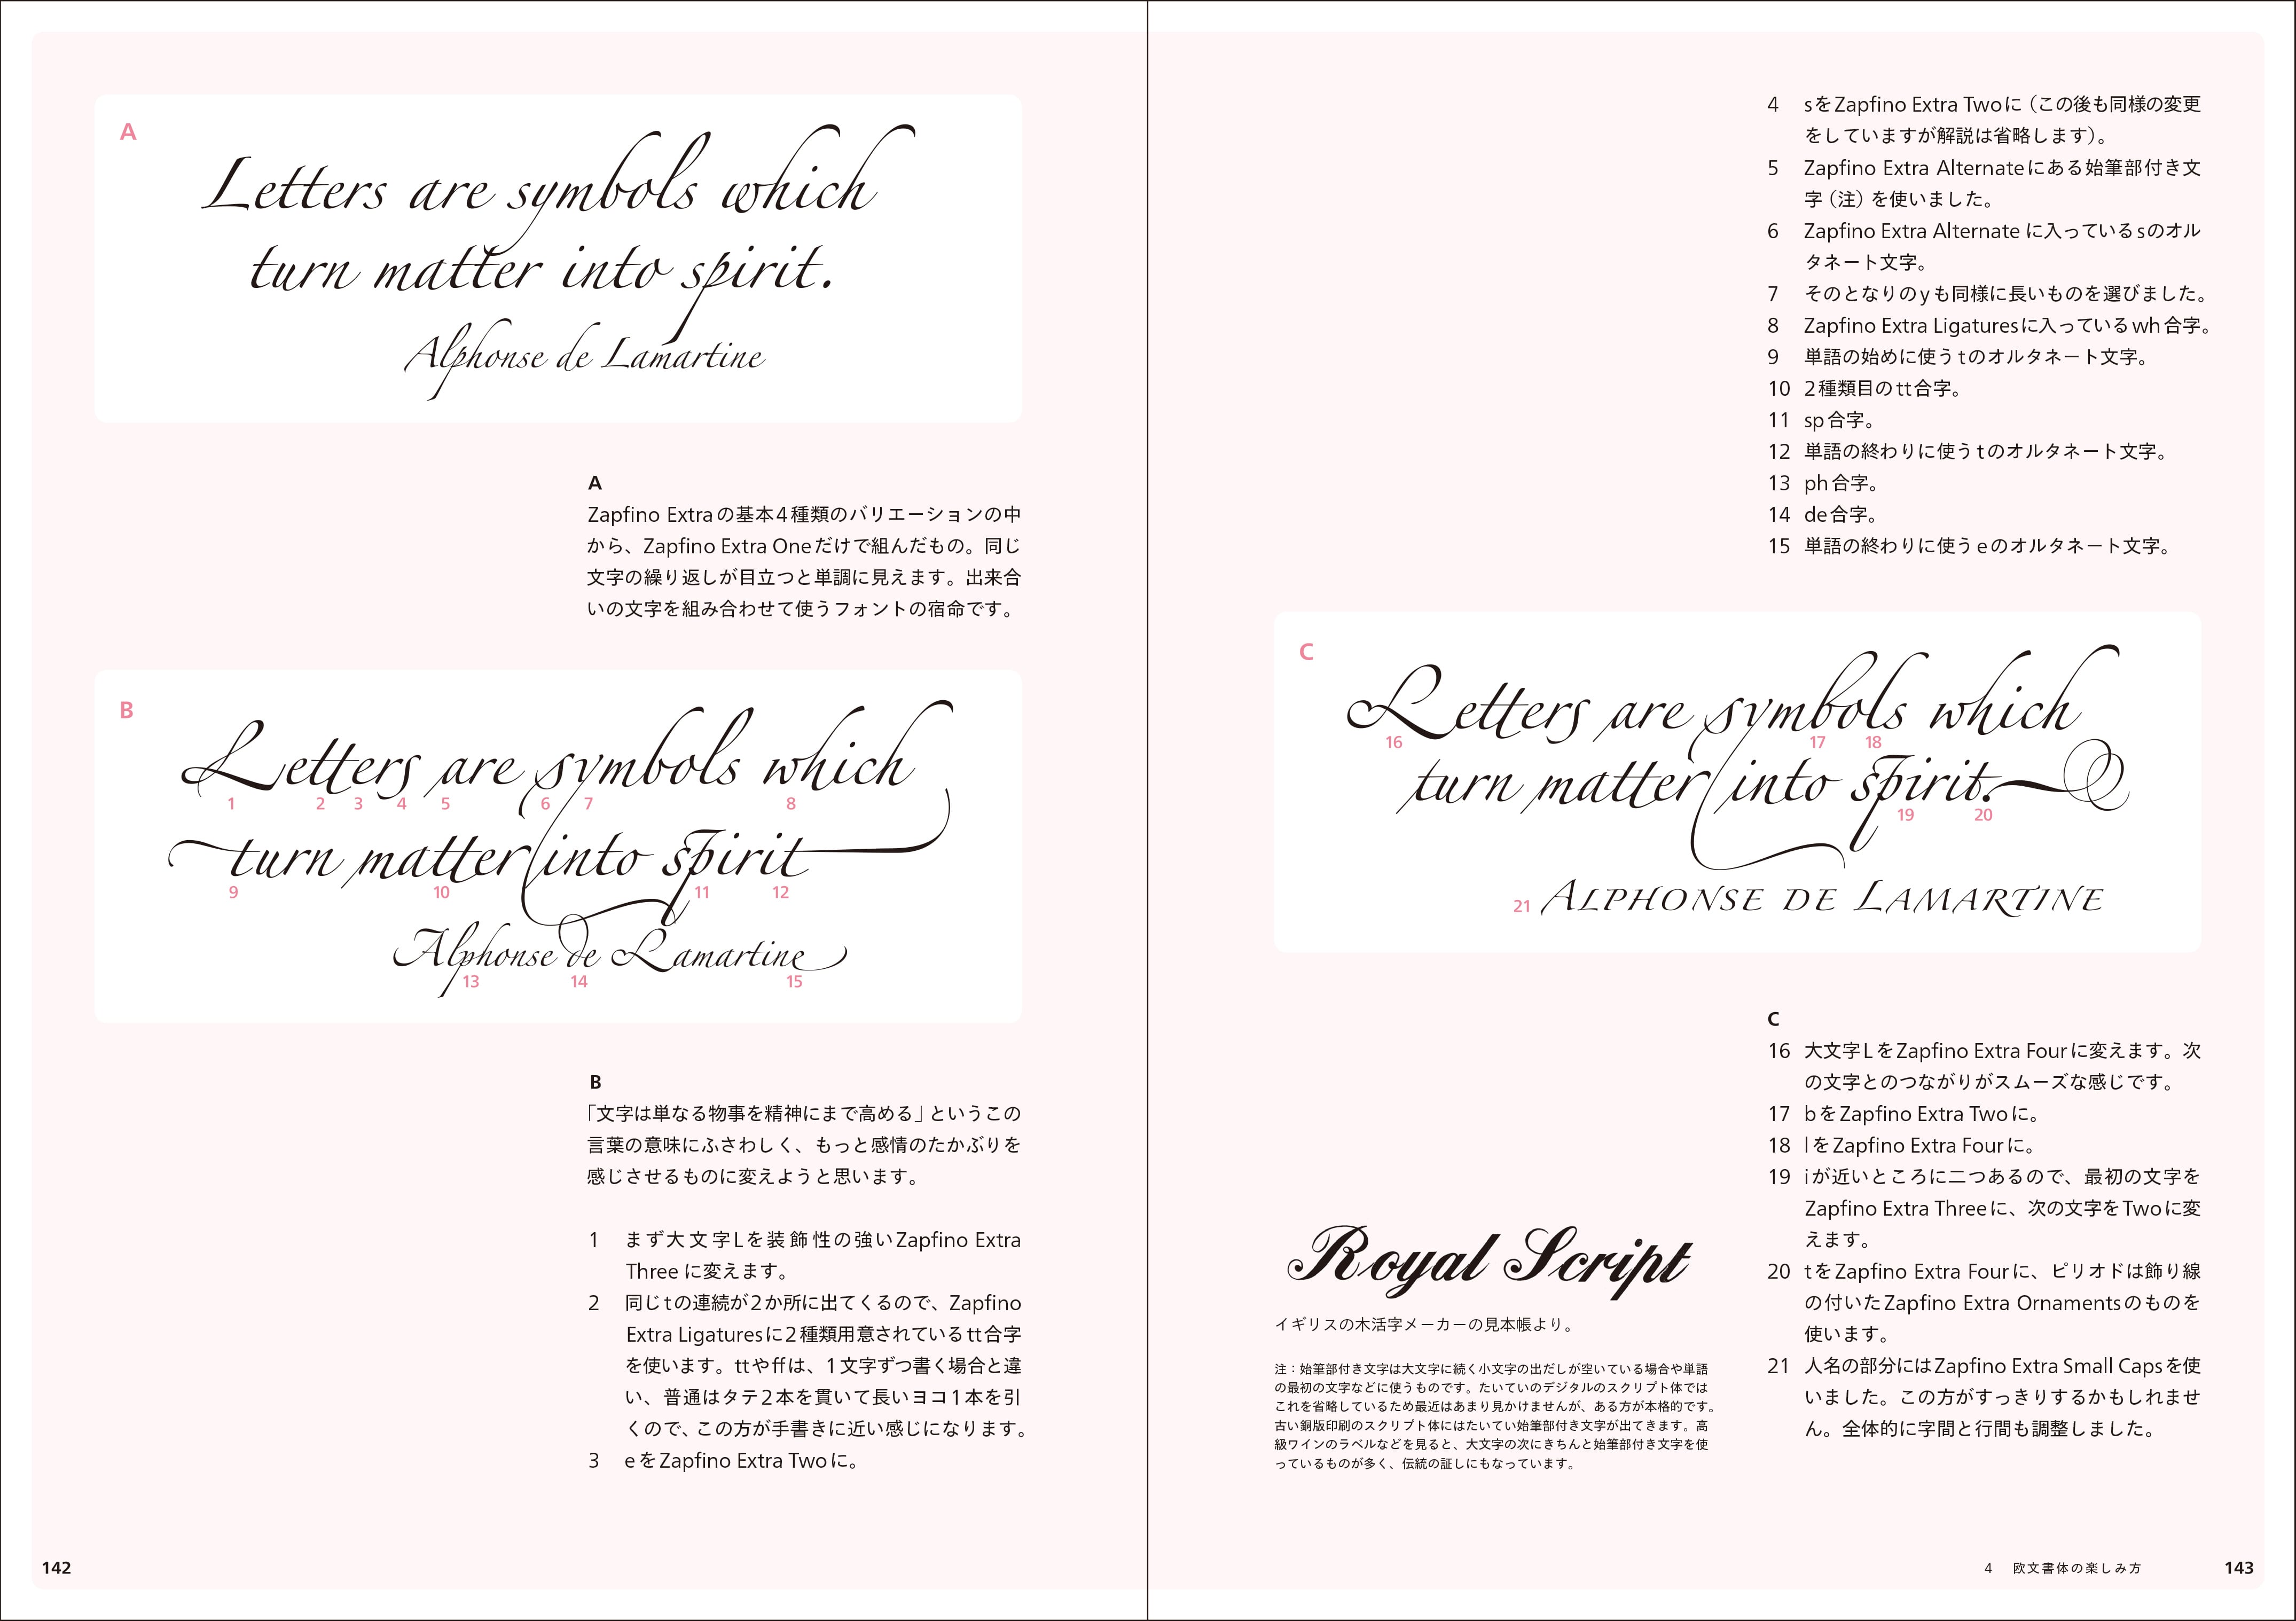 A
Letters are symbols which
turn matter into spirit.
Alphonse de Lamartine
A
Zapfino Extraの基本4種類のバリエーションの中
から、Zapfino Extra Oneだけで組んだもの。同じ
文字の繰り返しが目立つと単調に見えます。出来合
いの文字を組み合わせて使うフォントの宿命です。
B
Letters are symbols which
1 2 3 4 5 6 7 8
turn matter into spirit
9 10 11 12
Alphonse de Lamartine
13 14 15
B
「文字は単なる物事を精神にまで高める」というこの
言葉の意味にふさわしく、もっと感情のたかぶりを
感じさせるものに変えようと思います。
1 まず大文字Lを装飾性の強いZapfino Extra
Three に変えます。
2 同じtの連続が2か所に出てくるので、Zapfino
Extra Ligaturesに2種類用意されているtt合字
を使います。ttやffは、1文字ずつ書く場合と違
い、普通はタテ2本を貫いて長いヨコ1本を引
くので、この方が手書きに近い感じになります。
3 eをZapfino Extra Twoに。
142
4 sをZapfino Extra Twoに（この後も同様の変更
をしていますが解説は省略します）。
5 Zapfino Extra Alternateにある始筆部付き文
字（注）を使いました。
6 Zapfino Extra Alternate に入っているsのオル
タネート文字。
7 そのとなりのyも同様に長いものを選びました。
8 Zapfino Extra Ligaturesに入っているwh合字。
9 単語の始めに使うtのオルタネート文字。
10 2種類目のtt合字。
11 sp合字。
12 単語の終わりに使うtのオルタネート文字。
13 ph合字。
14 de合字。
15 単語の終わりに使うeのオルタネート文字。
C
Letters are symbols which
16 17 18
turn matter into spirit.
19 20
21 Alphonse de Lamartine
C
16 大文字LをZapfino Extra Fourに変えます。次
の文字とのつながりがスムーズな感じです。
17 bをZapfino Extra Twoに。
18 lをZapfino Extra Fourに。
19 iが近いところに二つあるので、最初の文字を
Zapfino Extra Threeに、次の文字をTwoに変
えます。
20 tをZapfino Extra Fourに、ピリオドは飾り線
の付いたZapfino Extra Ornamentsのものを
使います。
21 人名の部分にはZapfino Extra Small Capsを使
いました。この方がすっきりするかもしれませ
ん。全体的に字間と行間も調整しました。
Royal Script
イギリスの木活字メーカーの見本帳より。
注：始筆部付き文字は大文字に続く小文字の出だしが空いている場合や単語
の最初の文字などに使うものです。たいていのデジタルのスクリプト体では
これを省略しているため最近はあまり見かけませんが、ある方が本格的です。
古い銅版印刷のスクリプト体にはたいてい始筆部付き文字が出てきます。高
級ワインのラベルなどを見ると、大文字の次にきちんと始筆部付き文字を使
っているものが多く、伝統の証しにもなっています。
4 欧文書体の楽しみ方
143